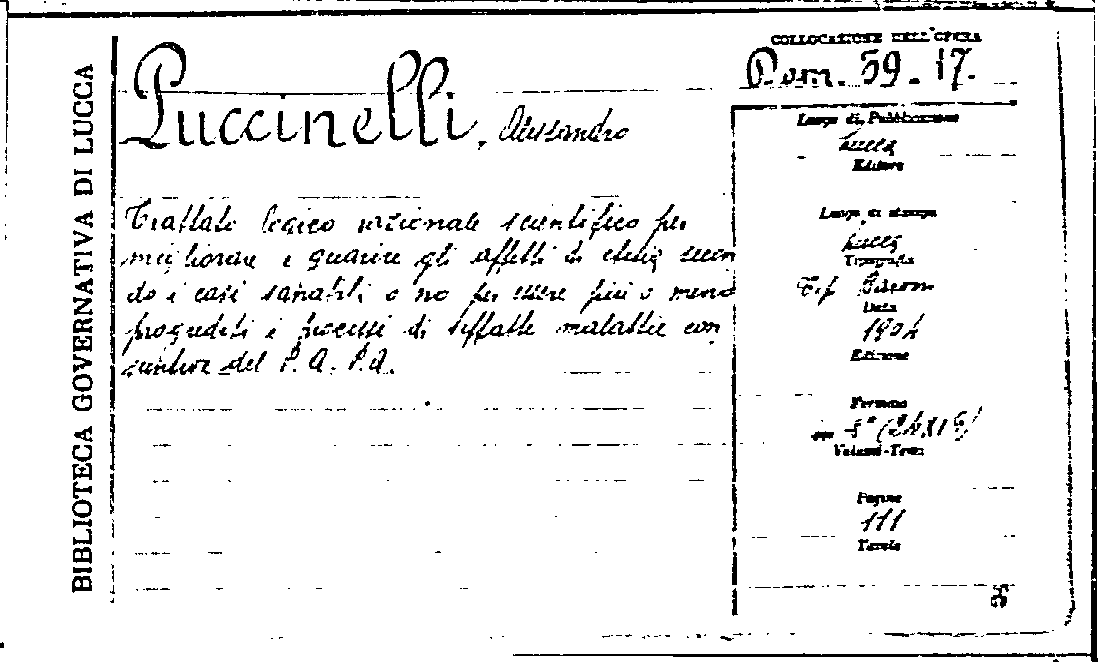 BIBLIOTECA GOVERNATIVA DI LUCCA
COLLOCAZIONE DELL'OPERA
Pom. 59. 17.
Puccinelli, Alessandro
Trattato logico razionale scientifico per
migliorare e guarire gli affetti di etisia secon
do i casi sanabili o no per essere più o meno
progrediti i processi di siffatte malattie con
suntive del P. A. Pa.
Luogo di Pubblicazione
Lucca
Editore
Luogo di stampa
Lucca
Tipografia
Tip.
Data
1904
Edizione
Formato
in 8° (24x16)
Volumi-Tomi
Pagine
111
Tavole